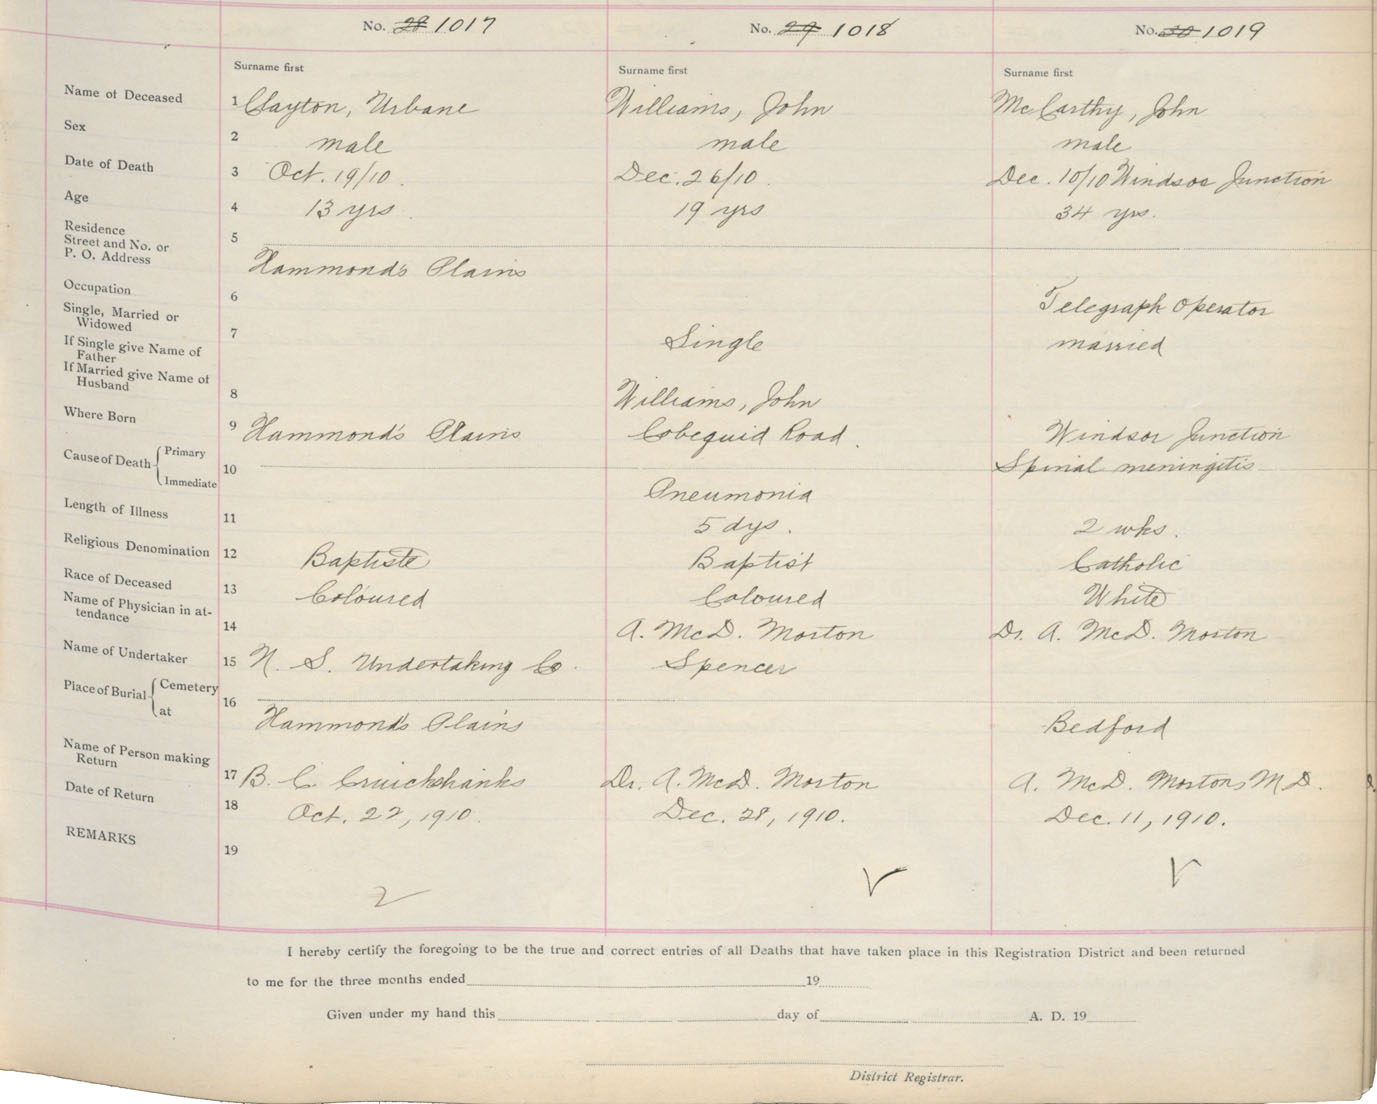 No. 28 1017 No. 29 1018 No. 30 1019
Surname first Surname first Surname first
Name of Deceased 1 Clayton, Urbane Williams, John McCarthy, John
Sex 2 male male male
Date of Death 3 Oct. 19/10. Dec. 26/10. Dec. 10/10 Windsor Junction
Age 4 13 yrs. 19 yrs 34 yrs.
Residence
Street and No. or 5
P. O. Address Hammond's Plains
Occupation 6 Telegraph Operator
Single, Married or
Widowed 7 Single married
If Single give Name of
Father
If Married give Name of
Husband 8 Williams, John
Where Born 9 Hammond's Plains Cobequid Road. Windsor Junction
Cause of Death Primary 10 Spinal meningitis
Immediate Pneumonia
Length of Illness 11 5 dys. 2 wks.
Religious Denomination 12 Baptiste Baptist Catholic
Race of Deceased 13 Coloured Coloured White
Name of Physician in at-
tendance 14 A. McD. Morton Dr. A. McD. Morton
Name of Undertaker 15 N. S. Undertaking Co. Spencer
Place of Burial Cemetery 16
at Hammond's Plains Bedford
Name of Person making
Return 17 B. C. Cruickshanks Dr. A. McD. Morton A. McD. Morton, M.D.
Date of Return 18 Oct. 22, 1910. Dec. 28, 1910. Dec. 11, 1910.
REMARKS 19
I hereby certify the foregoing to be the true and correct entries of all Deaths that have taken place in this Registration District and been returned
to me for the three months ended 19
Given under my hand this day of A. D. 19
District Registrar.